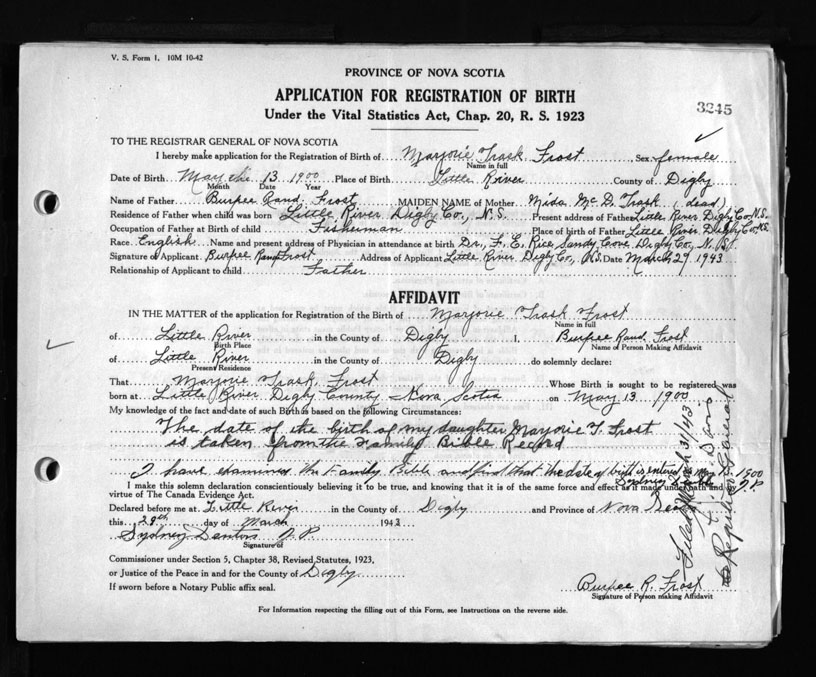 V. S. Form 1. 10M 10-42
PROVINCE OF NOVA SCOTIA
APPLICATION FOR REGISTRATION OF BIRTH
3245
Under the Vital Statistics Act, Chap. 20, R. S. 1923
TO THE REGISTRAR GENERAL OF NOVA SCOTIA
I hereby make application for the Registration of Birth of Marjorie Trask Frost Sex female
Name in full
Date of Birth May 13 1900 Place of Birth Little River County of Digby
Month Date Year
Name of Father Burpee Rand Frost MAIDEN NAME of Mother Mida Mc D. Trask (dead)
Residence of Father when child was born Little River Digby Co., N.S. Present address of Father Little River Digby Co. N.S.
Occupation of Father at Birth of child Fisherman Place of birth of Father Little River Digby Co. N.S.
Race English Name and present address of Physician in attendance at birth Dr. F. E. Rice, Sandy Cove, Digby Co., N.S.
Signature of Applicant Burpee Rand Frost Address of Applicant Little River Digby Co., N.S. Date March 29 1943
Relationship of Applicant to child Father
AFFIDAVIT
IN THE MATTER of the application for Registration of the Birth of Marjorie Trask Frost
Name in full
of Little River in the County of Digby I, Burpee Rand Frost
Birth Place Name of Person Making Affidavit
of Little River in the County of Digby do solemnly declare:
Present Residence
That Marjorie Trask Frost Whose Birth is sought to be registered was
born at Little River Digby County Nova Scotia on May 13 1900
My knowledge of the fact and date of such Birth is based on the following Circumstances:
The date of the birth of my daughter Marjorie T. Frost
is taken from the Family Bible Record
I have examined the Family Bible and find that the date of birth is entered as May 13. 1900
Sydney J.P.
I make this solemn declaration conscientiously believing it to be true, and knowing that it is of the same force and effect as if made under oath and by
virtue of The Canada Evidence Act.
Declared before me at Little River in the County of Digby and Province of Nova Scotia
this 29th day of March 1943
Sydney J. P.
Signature of
Commissioner under Section 5, Chapter 38, Revised Statutes, 1923,
or Justice of the Peace in and for the County of Digby
If sworn before a Notary Public affix seal.
Burpee R. Frost
Signature of Person making Affidavit
For Information respecting the filling out of this Form, see Instructions on the reverse side.
Filed March 31/43
Davis
Registrar General